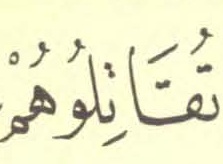 تُقَاتِلُوُهُمْ